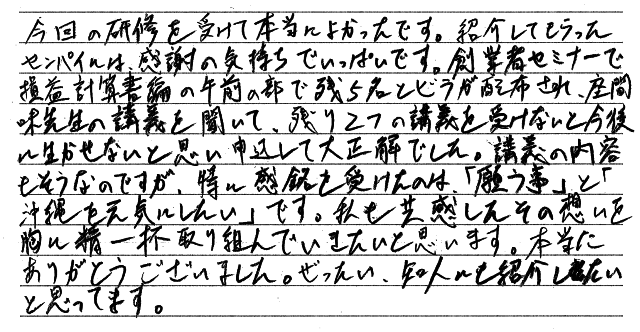 今回の研修を受けて本当によかったです。紹介してもらった
センパイには、感謝の気持ちでいっぱいです。創業者セミナーで
損益計算書編の午前の部で残5名とビラが配布され、座間
味先生の講義を聞いて、残り2つの講義を受けないと今後
に生かせないと思い申込して大正解でした。講義の内容
もそうなのですが、特に感銘を受けたのは、「願う事」と「
沖縄を元気にしたい」です。私も共感しその想いを
胸に精一杯取り組んでいきたいと思います。本当に
ありがとうございました。ぜったい、知人にも紹介したい
と思ってます。